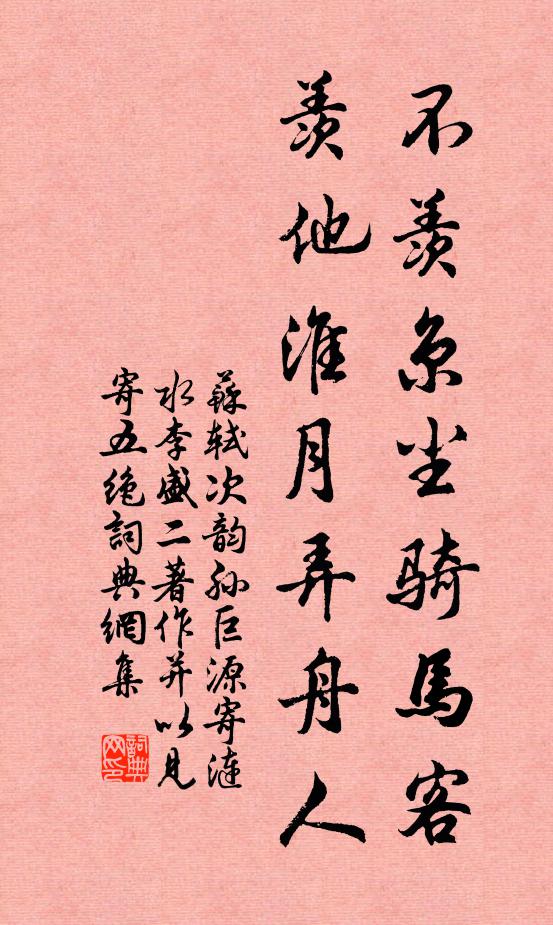 不羨京塵騎馬客
羨他淮月弄舟人
蘇軾次韵孫巨源寄漣
水李盛二著作并以見
寄五絶詞典網集
詞典
网印